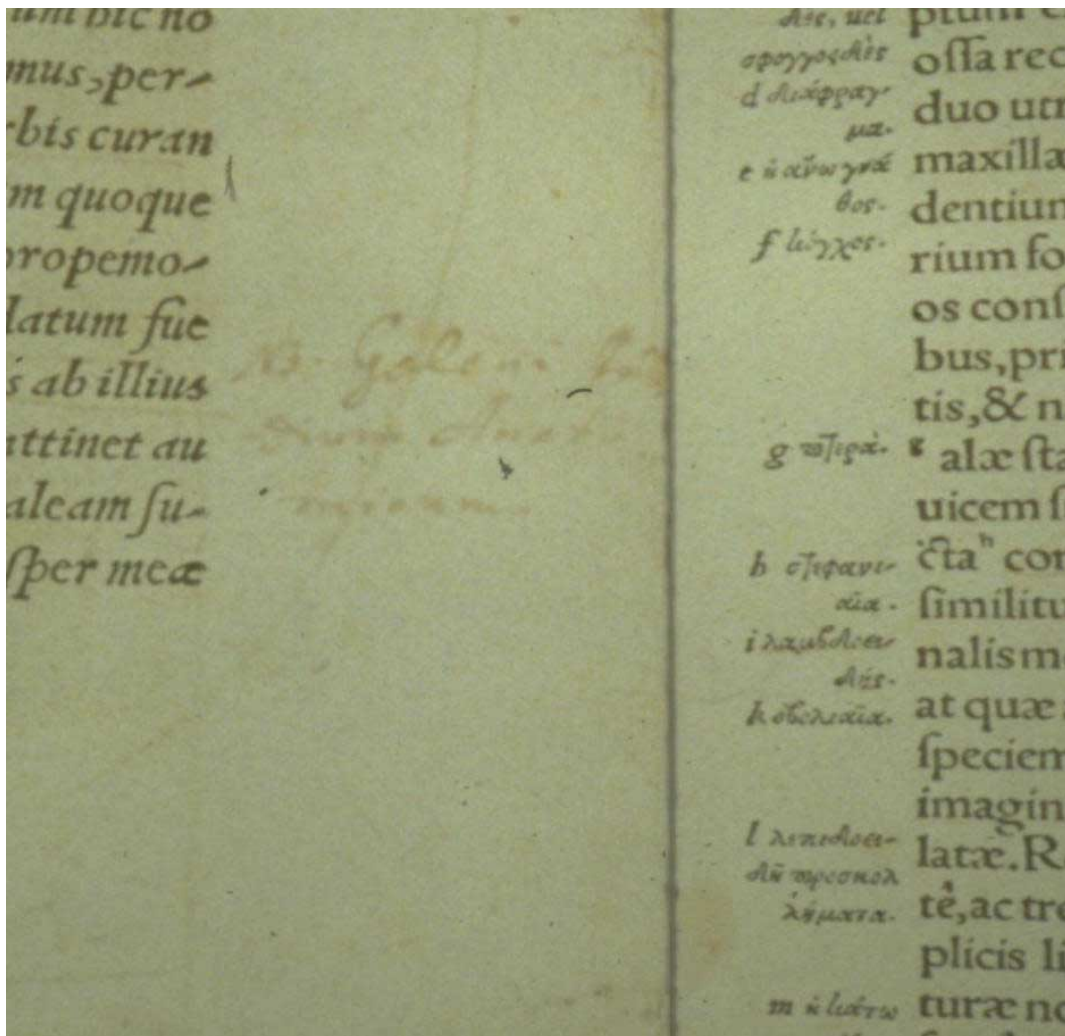 um hic no
mus, per-
rbis curan
m quoque
propemo-
latum fue
s ab illius
attinet au
aleam su-
sper meæ
Galeni
σφογγοειδὲς
d διάφραγ-
μα.
e ἡ ἄνω γνά
θος.
f κόγχος.
g πτερὰ.
h στεφανι-
αία.
i λαμβδοει-
δής.
k ὀβελιαία.
l λεπιδοει-
δῆ προσκολ
λήματα.
m ἡ κάτω
ossa rec
duo utr
maxillæ
dentium
rium fo
os conſ
bus, pri
tis, & n
g alæ ſta
uicem ſ
cta h con
ſimilitu
nalis me
at quæ
ſpeciem
imagin
latæ. R
tè, ac tre
plicis li
turæ no